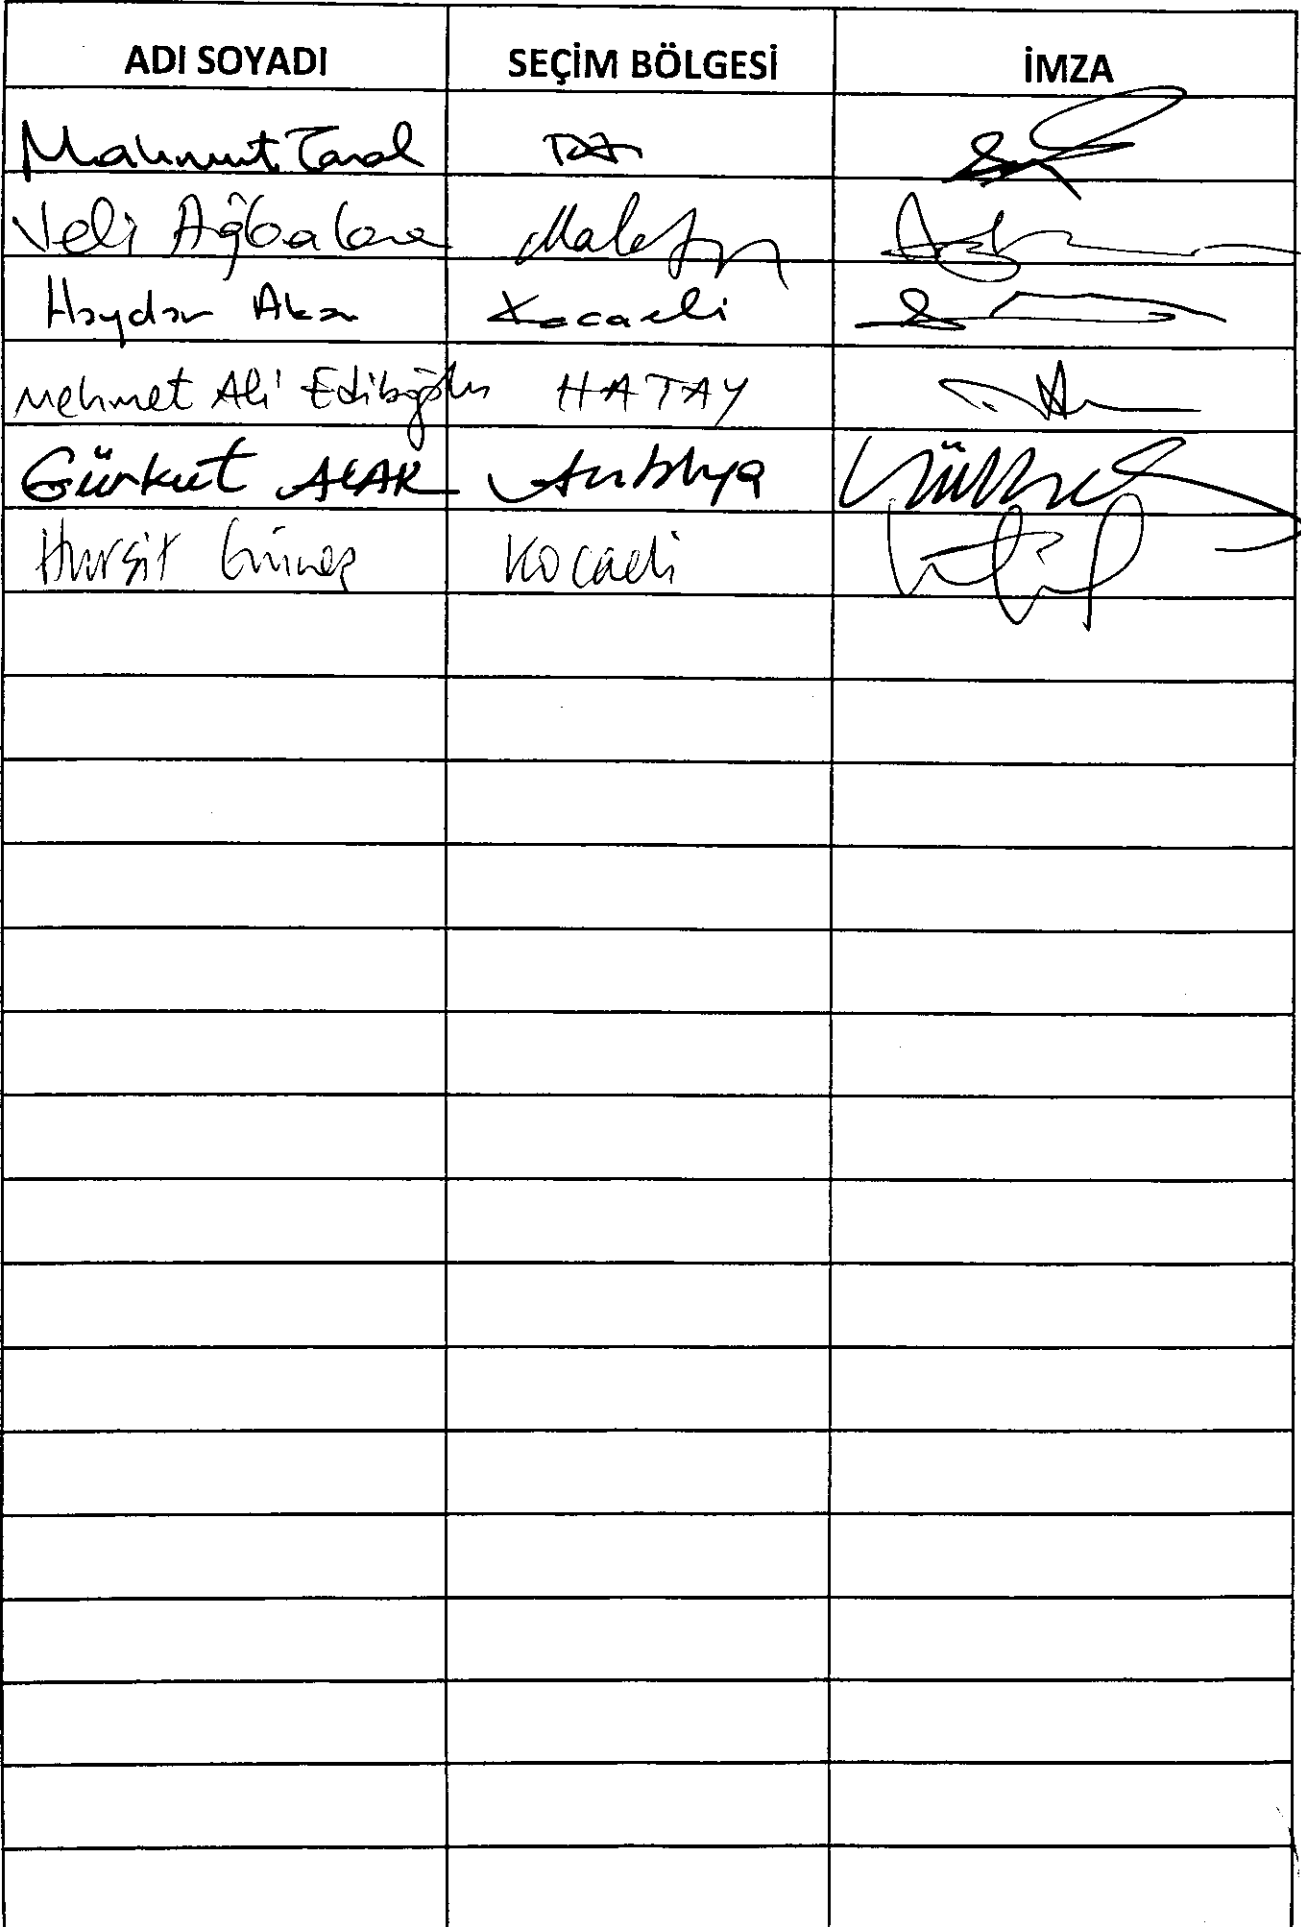 ADI SOYADI SEÇİM BÖLGESİ İMZA
Mahmut Tanal
Veli Ağbaba Malatya
Haydar Akar Kocaeli
Mehmet Ali Ediboğlu HATAY
Gürkut ACAR Antalya
Hurşit Güneş Kocaeli